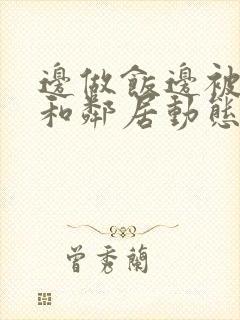 邊做飯邊被
和鄰居動態
曾秀蘭